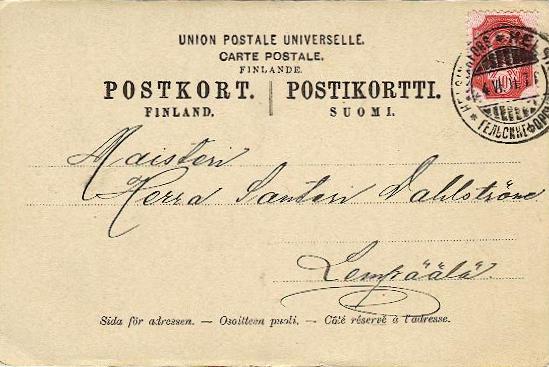 UNION POSTALE UNIVERSELLE.
CARTE POSTALE.
FINLANDE.
POSTKORT. | POSTIKORTTI.
FINLAND. SUOMI.
ГЕЛЬСИНГФОРС
Maisteri
Herra Santeri Dahlströme
Lempäälä.
Sida för adressen. — Osoitteen puoli. — Côté réservé à l'adresse.